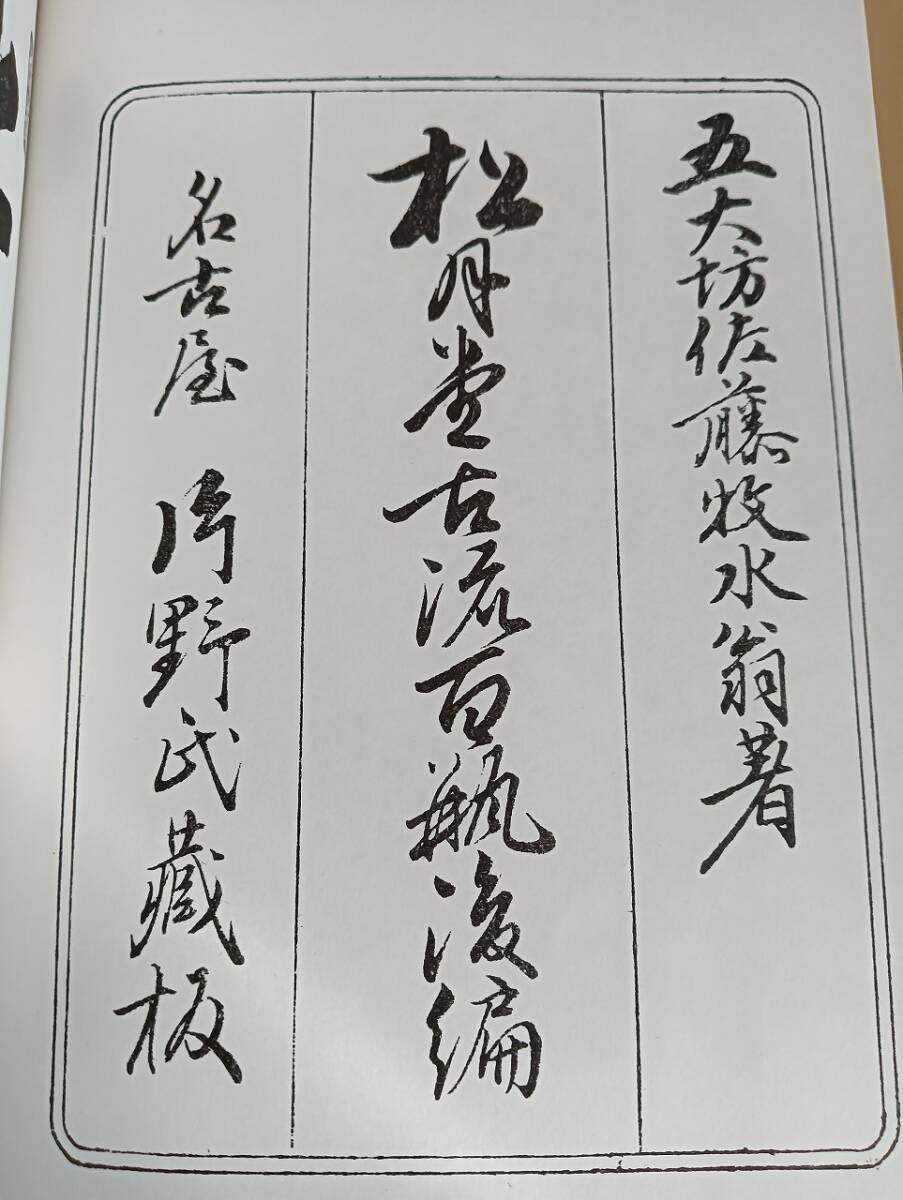 五大坊佐藤牧水翁著
松月堂古流百瓶後編
名古屋 片野氏藏板